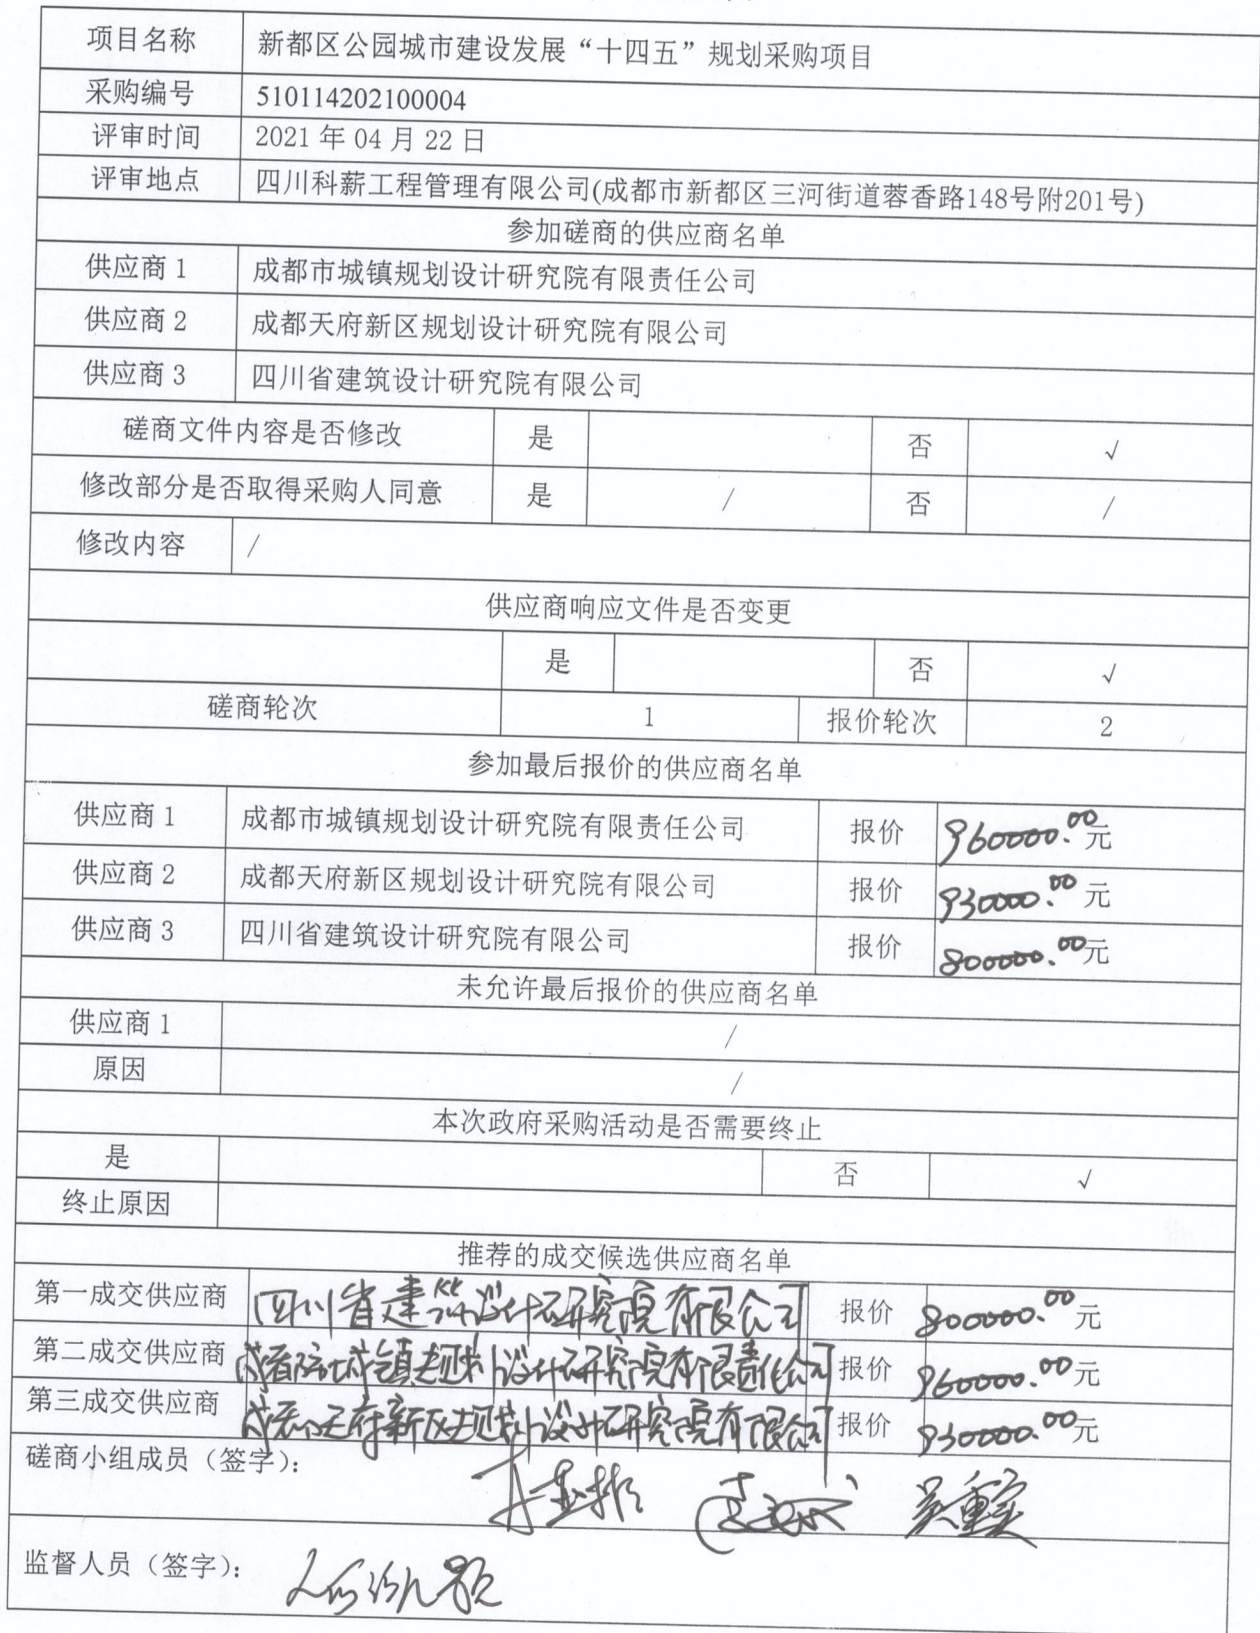 项目名称 新都区公园城市建设发展“十四五”规划采购项目
采购编号 510114202100004
评审时间 2021 年 04 月 22 日
评审地点 四川科薪工程管理有限公司(成都市新都区三河街道蓉香路148号附201号)
参加磋商的供应商名单
供应商 1 成都市城镇规划设计研究院有限责任公司
供应商 2 成都天府新区规划设计研究院有限公司
供应商 3 四川省建筑设计研究院有限公司
磋商文件内容是否修改 是 否 √
修改部分是否取得采购人同意 是 / 否 /
修改内容 /
供应商响应文件是否变更
是 否 √
磋商轮次 1 报价轮次 2
参加最后报价的供应商名单
供应商 1 成都市城镇规划设计研究院有限责任公司 报价 960000.00元
供应商 2 成都天府新区规划设计研究院有限公司 报价 930000.00元
供应商 3 四川省建筑设计研究院有限公司 报价 800000.00元
未允许最后报价的供应商名单
供应商 1 /
原因 /
本次政府采购活动是否需要终止
是 否 √
终止原因
推荐的成交候选供应商名单
第一成交供应商 四川省建筑设计研究院有限公司 报价 800000.00元
第二成交供应商 成都市城镇规划设计研究院有限责任公司 报价 960000.00元
第三成交供应商 成都天府新区规划设计研究院有限公司 报价 930000.00元
磋商小组成员（签字）：
监督人员（签字）：